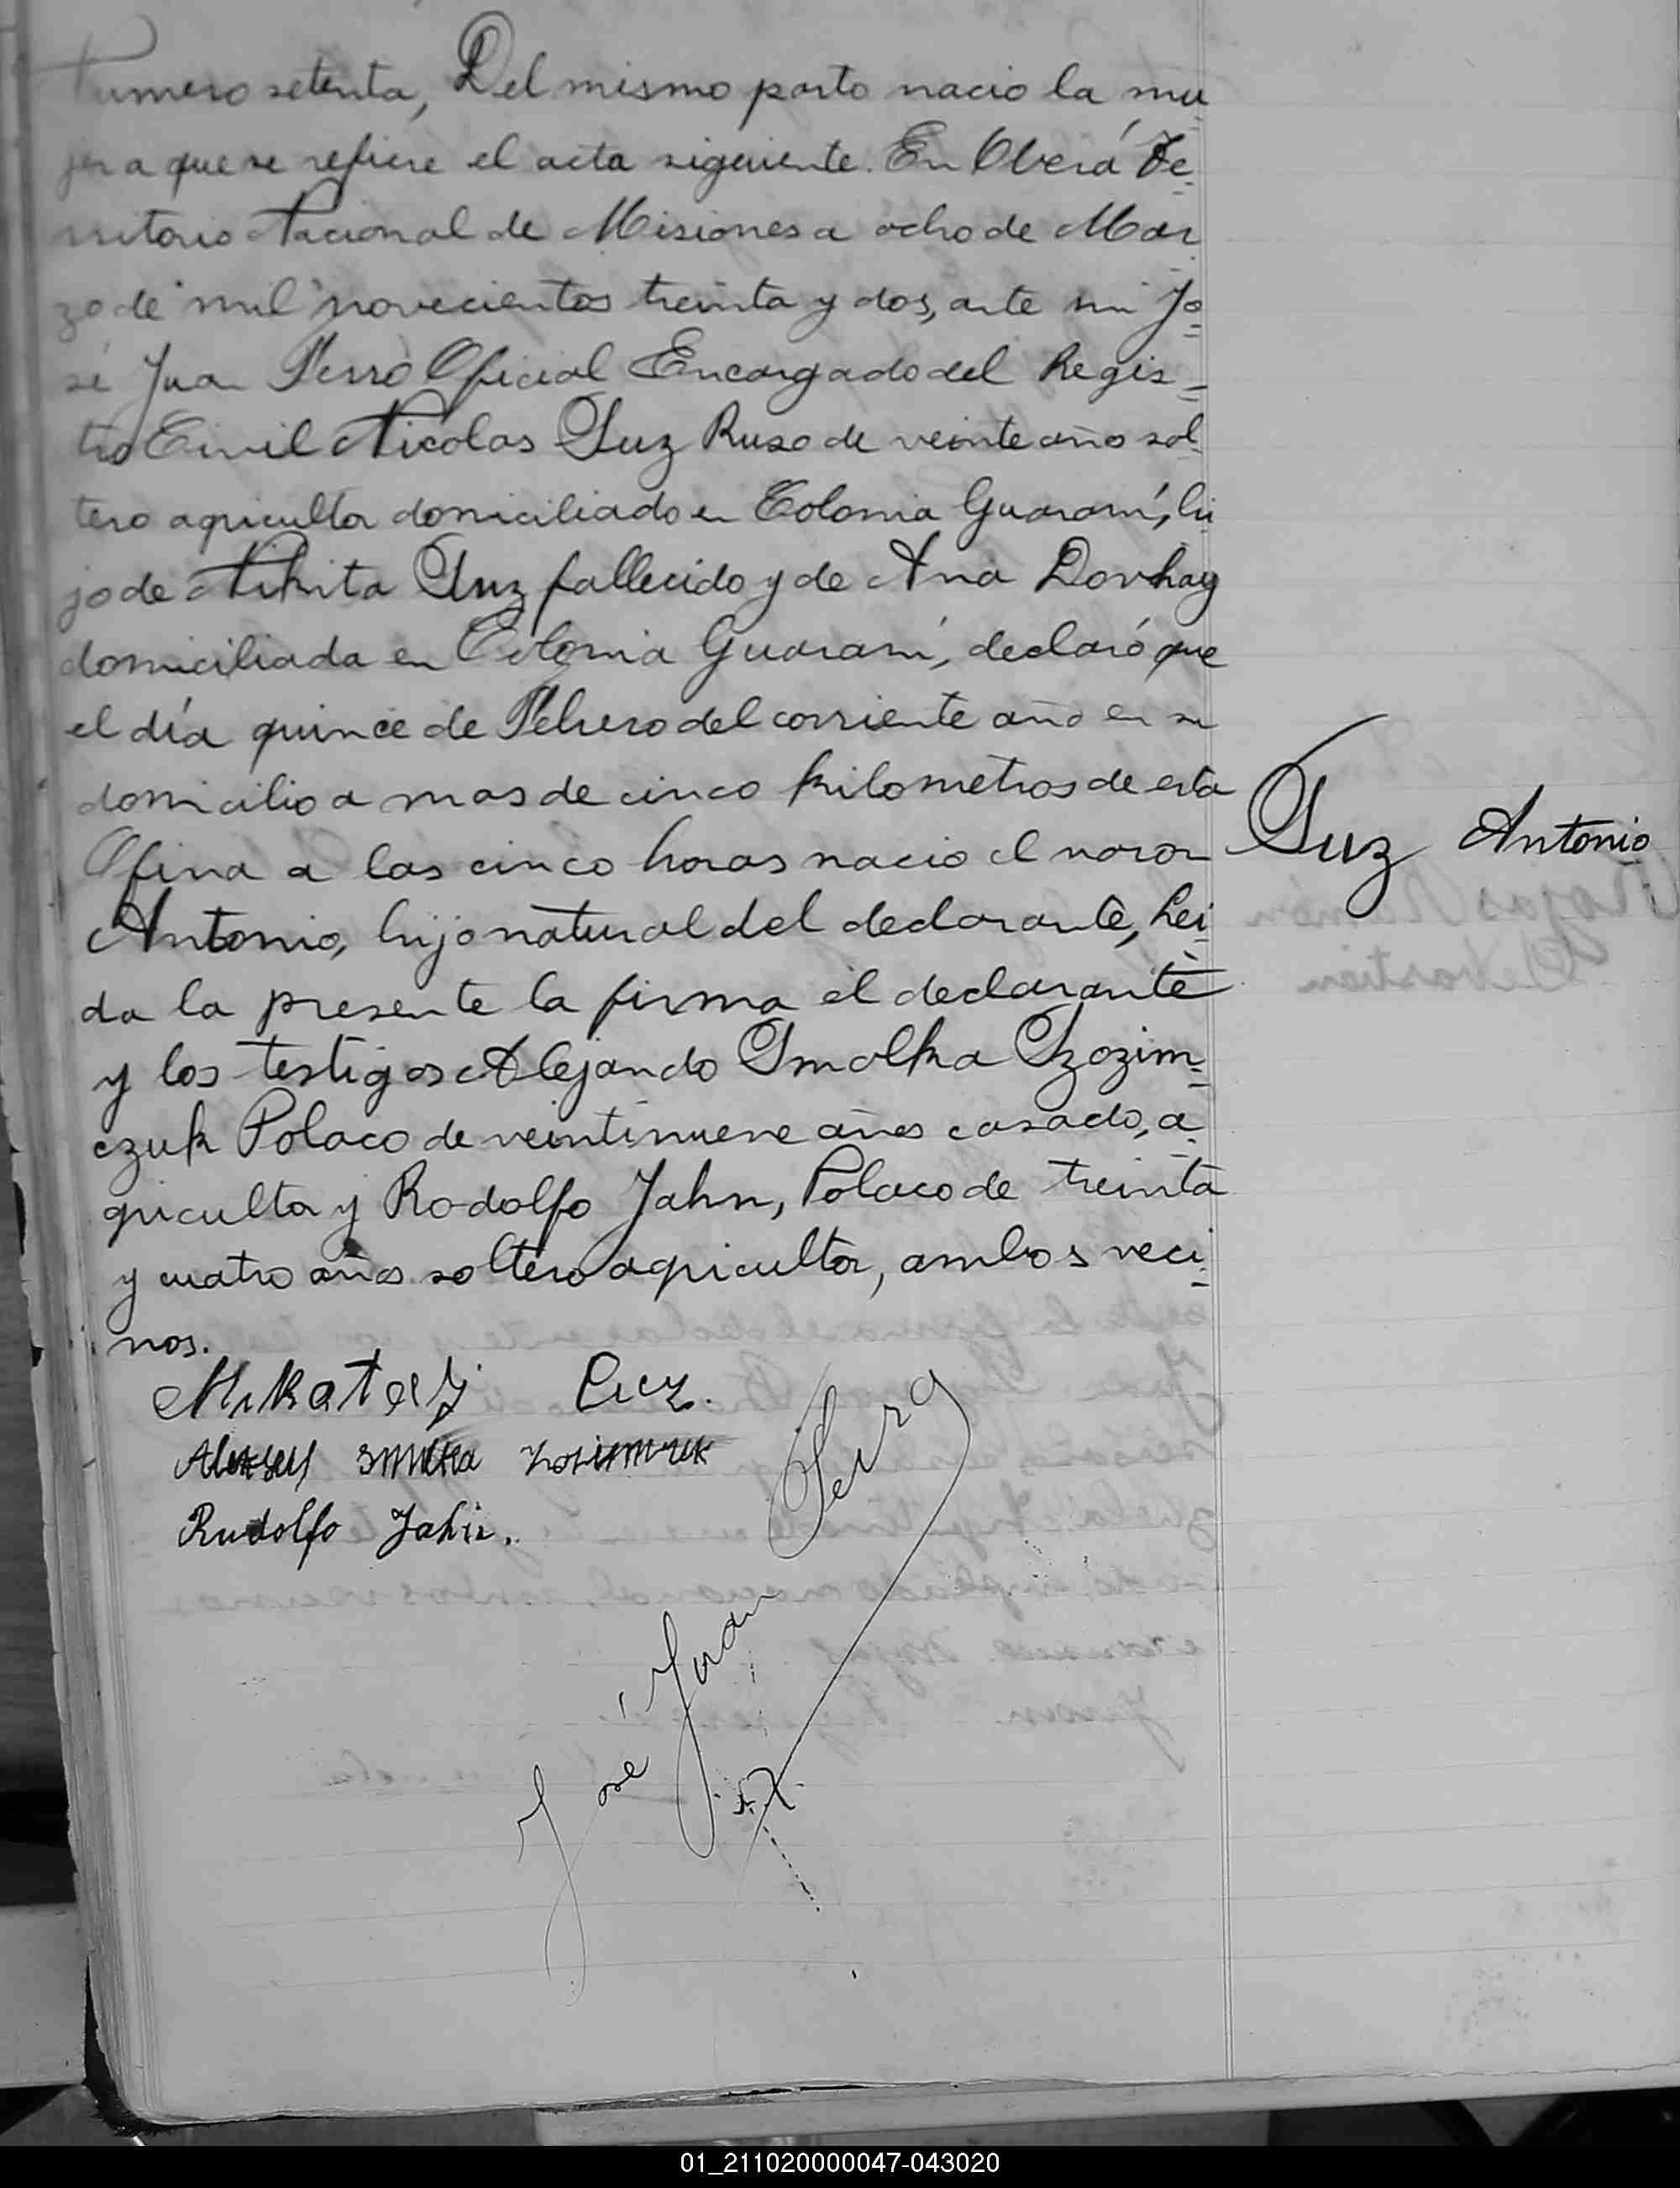 Numero setenta, Del mismo parto nacio la mu
jer a que se refiere el acta siguiente. En Oberá Te
rritorio Nacional de Misiones a ocho de Mar
zo de mil novecientos treinta y dos, ante mi Jo
sé Juan Ferro Oficial Encargado del Regis
tro Civil Nicolas Suz Ruso de veinte año sol
tero agricultor domiciliado en Colonia Guaraní, hi
jo de Nikita Suz fallecido y de Ana Dovhay
domiciliada en Colonia Guaraní, declaró que
el día quince de Febrero del corriente año en su
domicilio a mas de cinco kilometros de esta
Ofina a las cinco horas nacio el varon
Suz Antonio
Antonio, hijo natural del declarante, Lei
da la presente la firma el declarante
y los testigos Alejando Smolka Szozim
czuk Polaco de veintinueve años casado, a
gricultor y Rodolfo Jahn, Polaco de treinta
y cuatro años soltero agricultor, ambos veci
nos.
Rudolfo Jahn.
José Juan Ferro